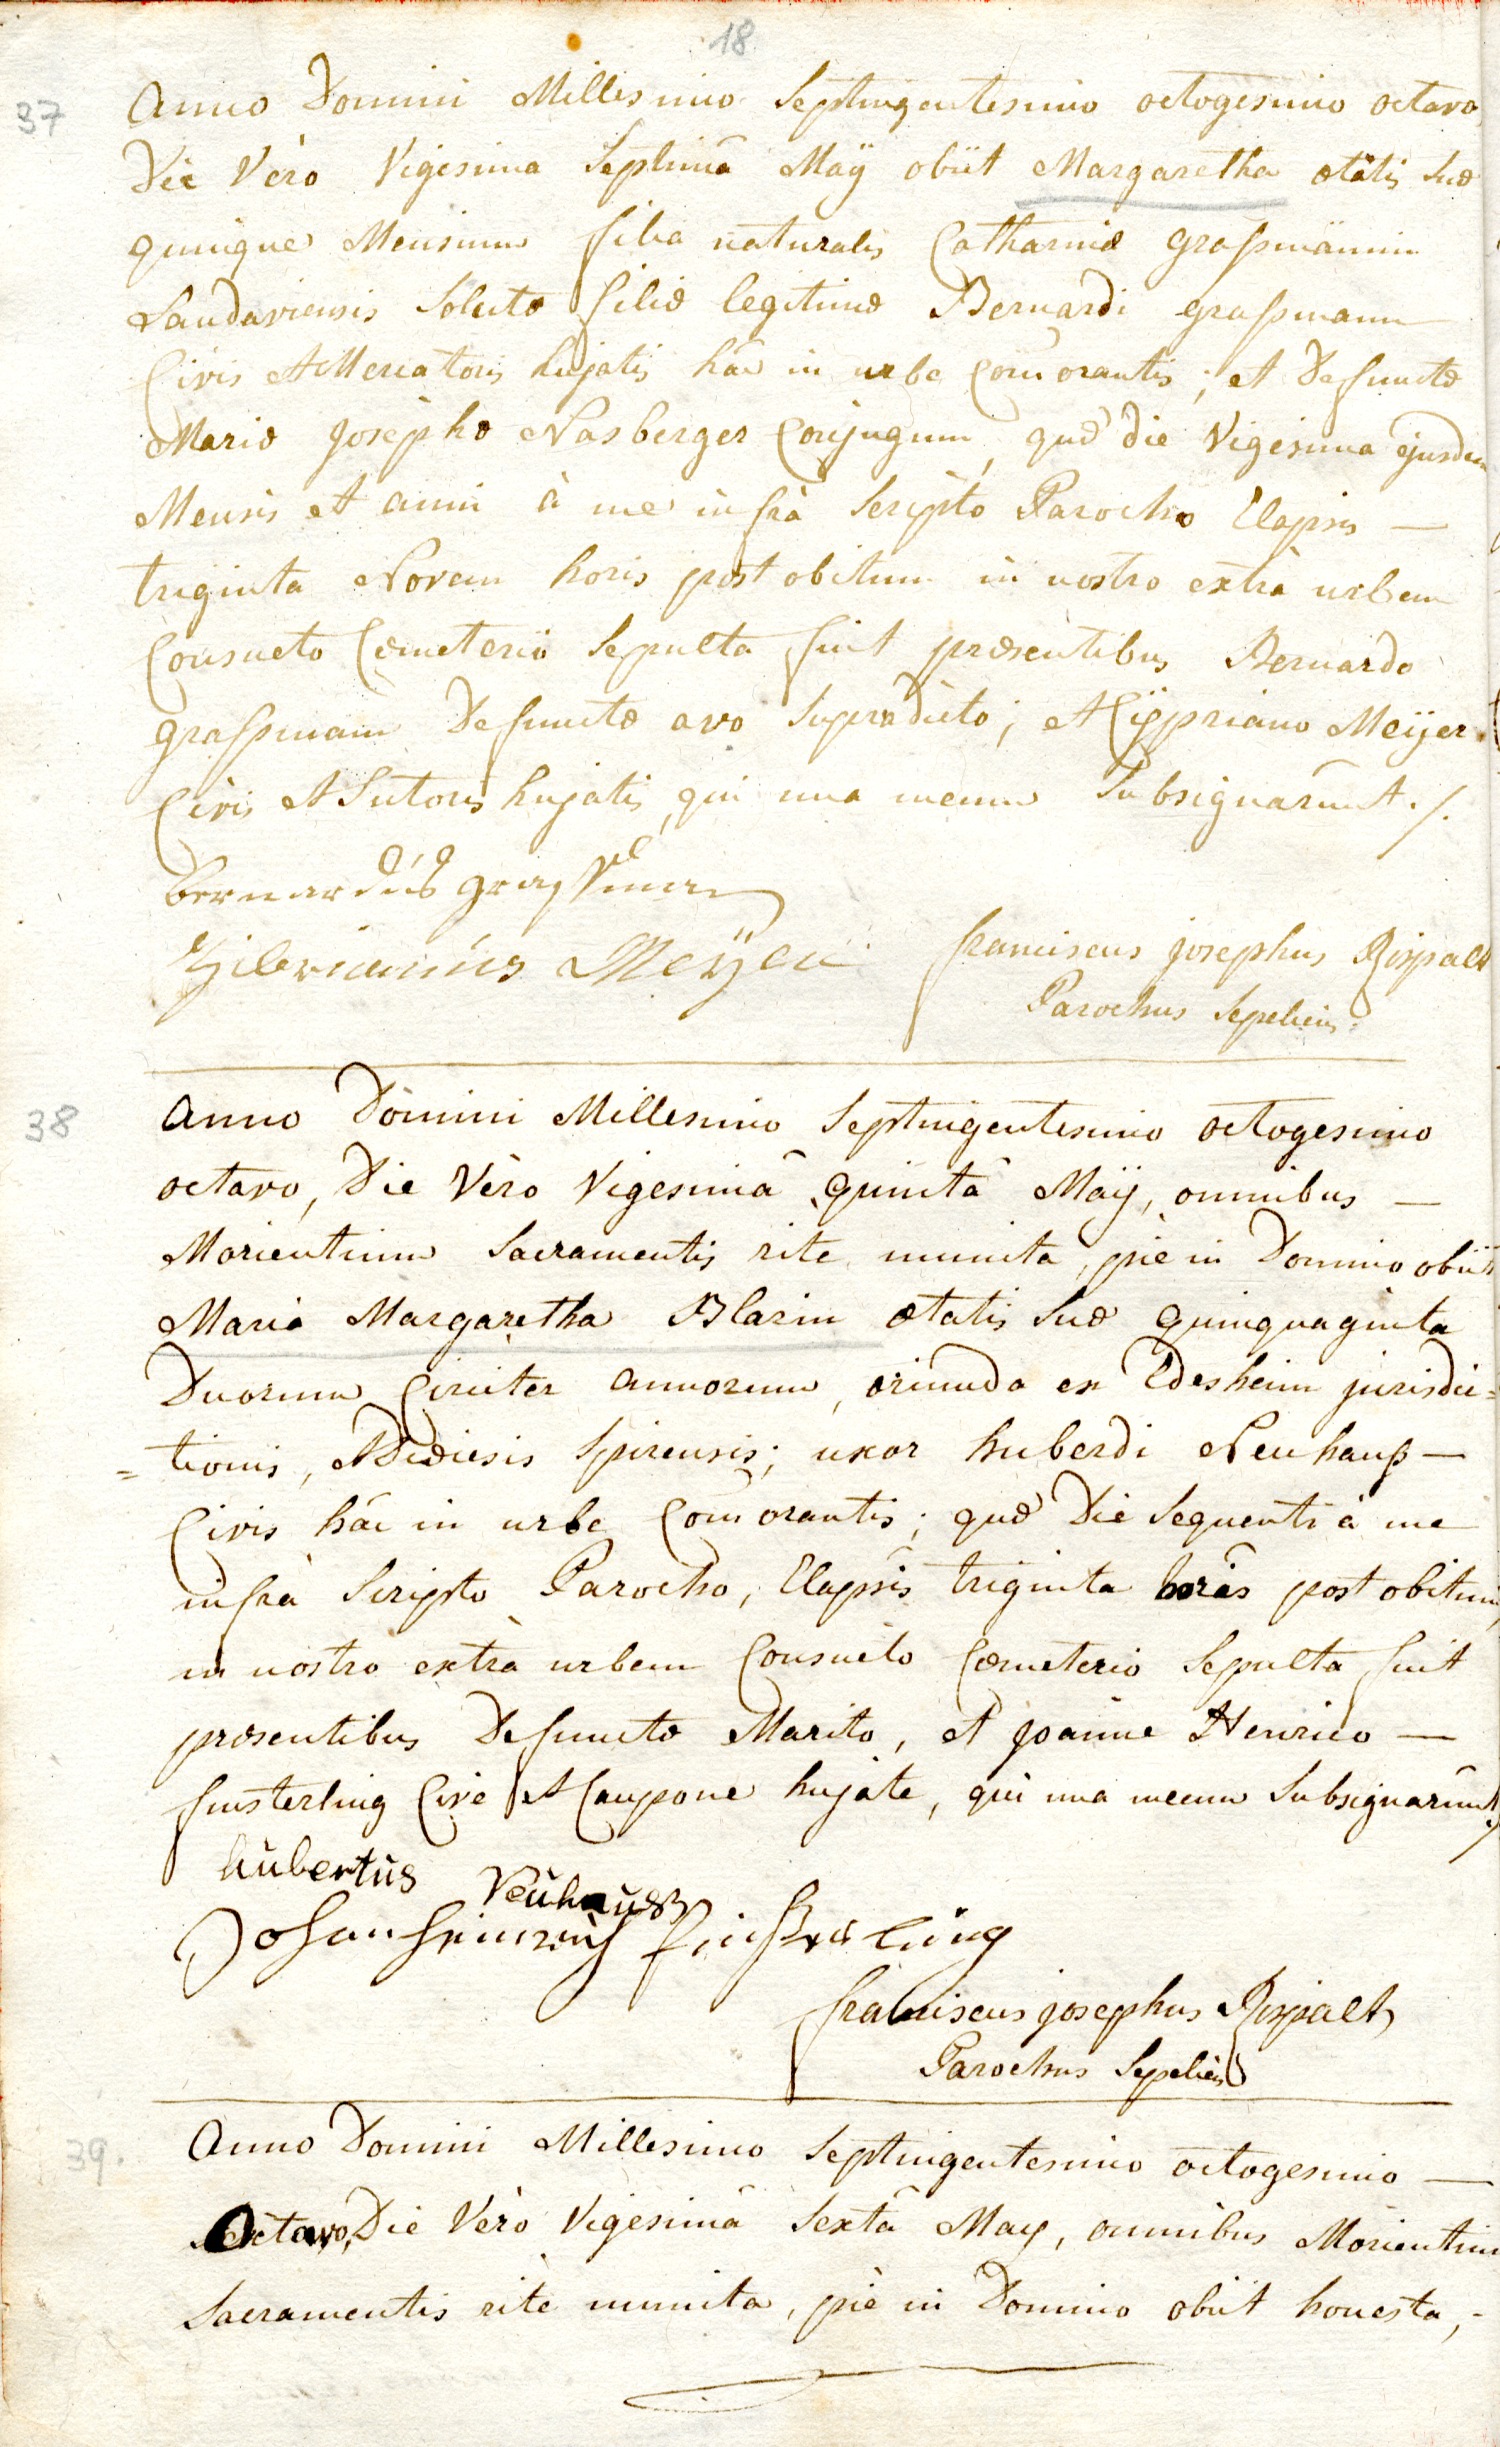 18
37
Anno Domini Millesimo Septingentesimo octogesimo octavo,
Die Vèro Vigesima Septimâ Maÿ obiit Margaretha ætatis suæ
quinque Mensium filia naturalis Catharinæ graßmännin
Landaviensis Solutæ filiæ legitimæ Bernardi graßmann
Civis et Mercatoris hujatis hâc in urbe Com̄orantis; et Defunctæ
Mariæ Josèphæ Nasberger Conjugum, quæ die Vigesima ejusdem
Mensis et anni à me infrà Scripto Parocho Elapsis —
triginta Novem horis post obitum in nostro extrà urbem
Consueto Cœmeterio Sepulta fuit præsentibus Bernardo
graßmann Defunctæ avo supradicto; et Cÿpriano Meÿer
Civis et Sutoris hujatis, qui una mecum Subsignarunt./.
Bernardus graßman
Meÿer
franciscus josephus Rispalt
Parochus Sepeliens.
38
Anno Domini Millesimo Septingentesimo octogesimo
octavo, Die Vèro Vigesimâ quintâ Maÿ, omnibus —
Morientium Sacramentis rite munita, piè in Domino obiit
Maria Margaretha Blasin ætatis suæ quinquaginta
Duorum Circiter annorum, oriunda ex Edesheim jurisdic=
=tionis, et Diœcesis Spirensis; uxor huberdi Neuhauß —
Civis hâc in urbe Com̄orantis; quæ Die Sequenti à me
infrà Scripto Parocho, Elapsis triginta horis post obitum,
in nostro extrà urbem Consueto Cœmeterio Sepulta fuit
præsentibus Defunctæ Marito, et joanne Henrico —
finsterling Cive et Caupone hujate, qui una mecum Subsignarunt./
hubertus Neuhauss
Johan Heinrich finsterling
franciscus josephus Rispalt
Parochus Sepeliens
39.
Anno Domini Millesimo Septingentesimo octogesimo —
Octavo, Die Vèro Vigesimâ Sextâ May, omnibus Morientium
Sacramentis ritè munita, piè in Domino obiit honesta,-